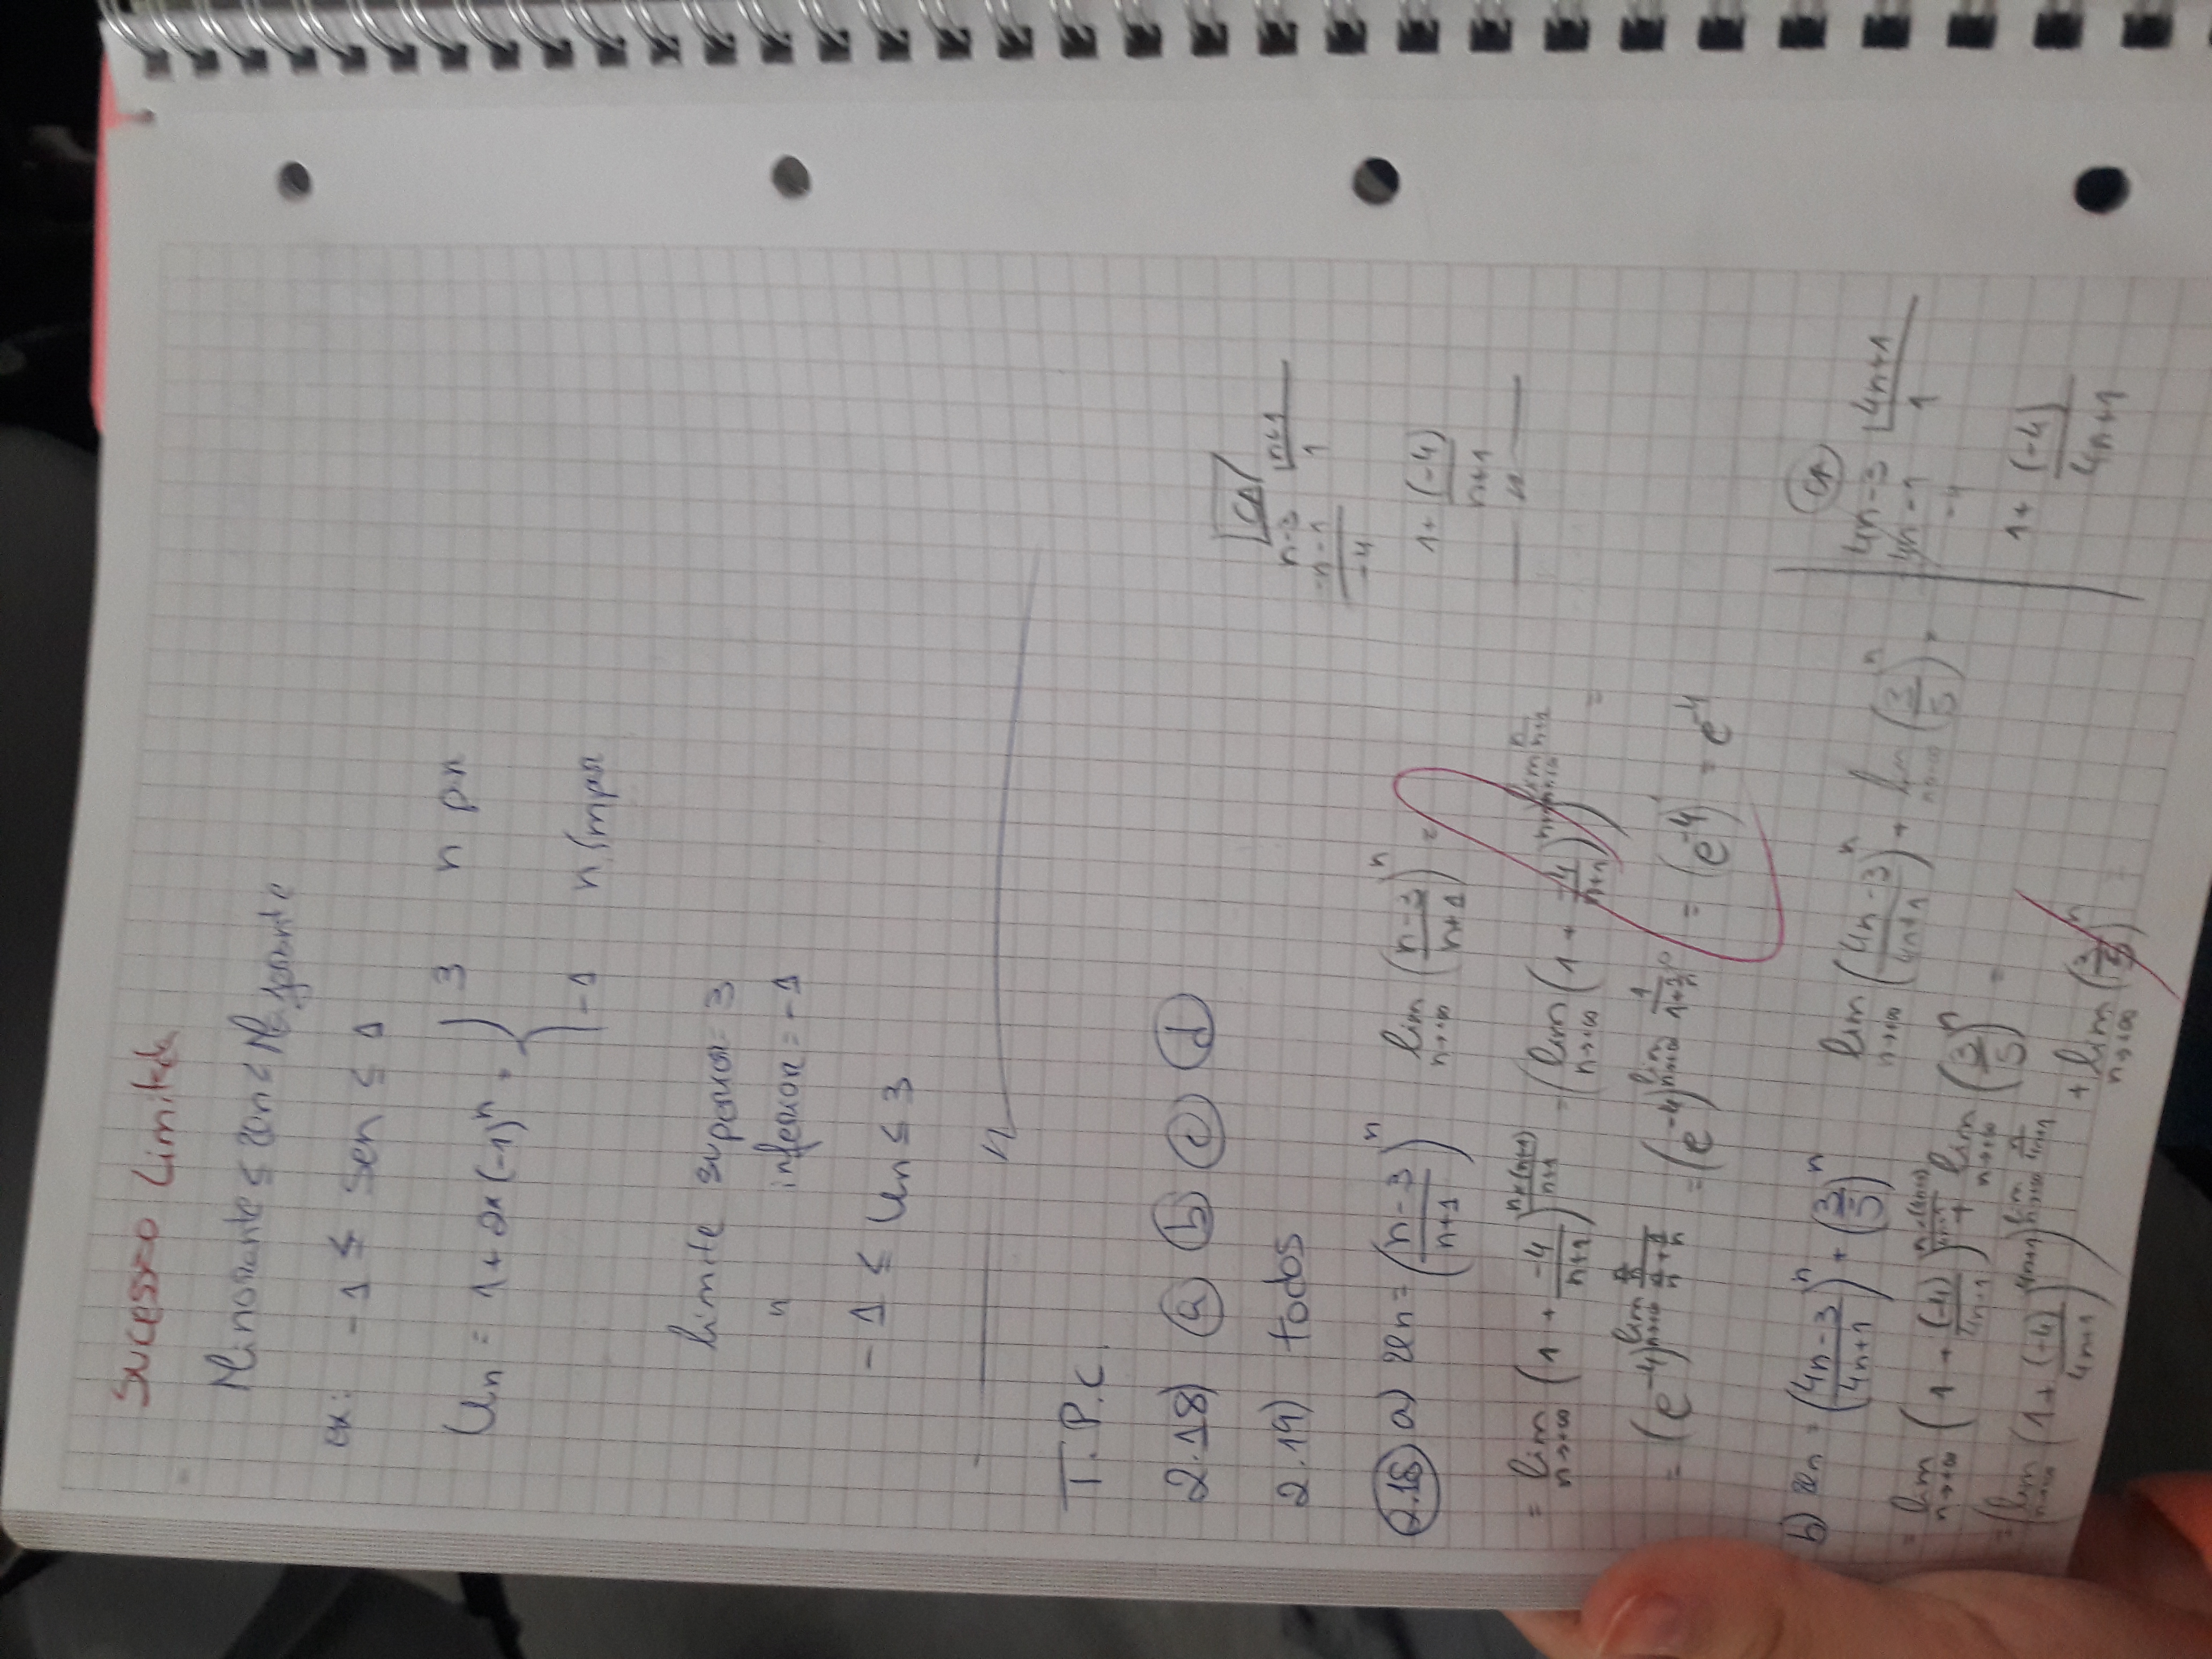 Sucessão Limitada
Minorante ≤ un ≤ Majorante
ex: -1 ≤ sen ≤ 1
Un = 1 + 2x(-1)^n = { 3 n par
-1 n ímpar
limite superior = 3
" inferior = -1
-1 ≤ Un ≤ 3
T.P.C.
2.18) a b c d
2.19) todos
CA
n-3 | n+1
-n-1 1
-4
1 + (-4)/(n+1)
2.18 a) un = ((n-3)/(n+1))^n lim n→+∞ ((n-3)/(n+1))^n =
= lim n→+∞ (1 + -4/(n+1))^(n×(n+1)/(n+1)) = (lim n→+∞ (1 + -4/(n+1))^(n+1))^(lim n→+∞ n/(n+1)) =
= (e^-4)^(lim n→+∞ (n/n)/(n/n + 1/n)) = (e^-4)^(lim n→+∞ 1/(1 + 1/n)) = (e^-4)^1 = e^-4
b) un = ((4n-3)/(4n+1))^n + (3/5)^n lim n→+∞ ((4n-3)/(4n+1))^n + lim n→+∞ (3/5)^n =
= lim n→+∞ (1 + (-4)/(4n+1))^(n×(4n+1)/(4n+1)) + lim n→+∞ (3/5)^n =
= (lim n→+∞ (1 + (-4)/(4n+1))^(4n+1))^(lim n→+∞ n/(4n+1)) + lim n→+∞ (3/5)^n =
CA
4n-3 | 4n+1
-4n-1 1
-4
1 + (-4)/(4n+1)